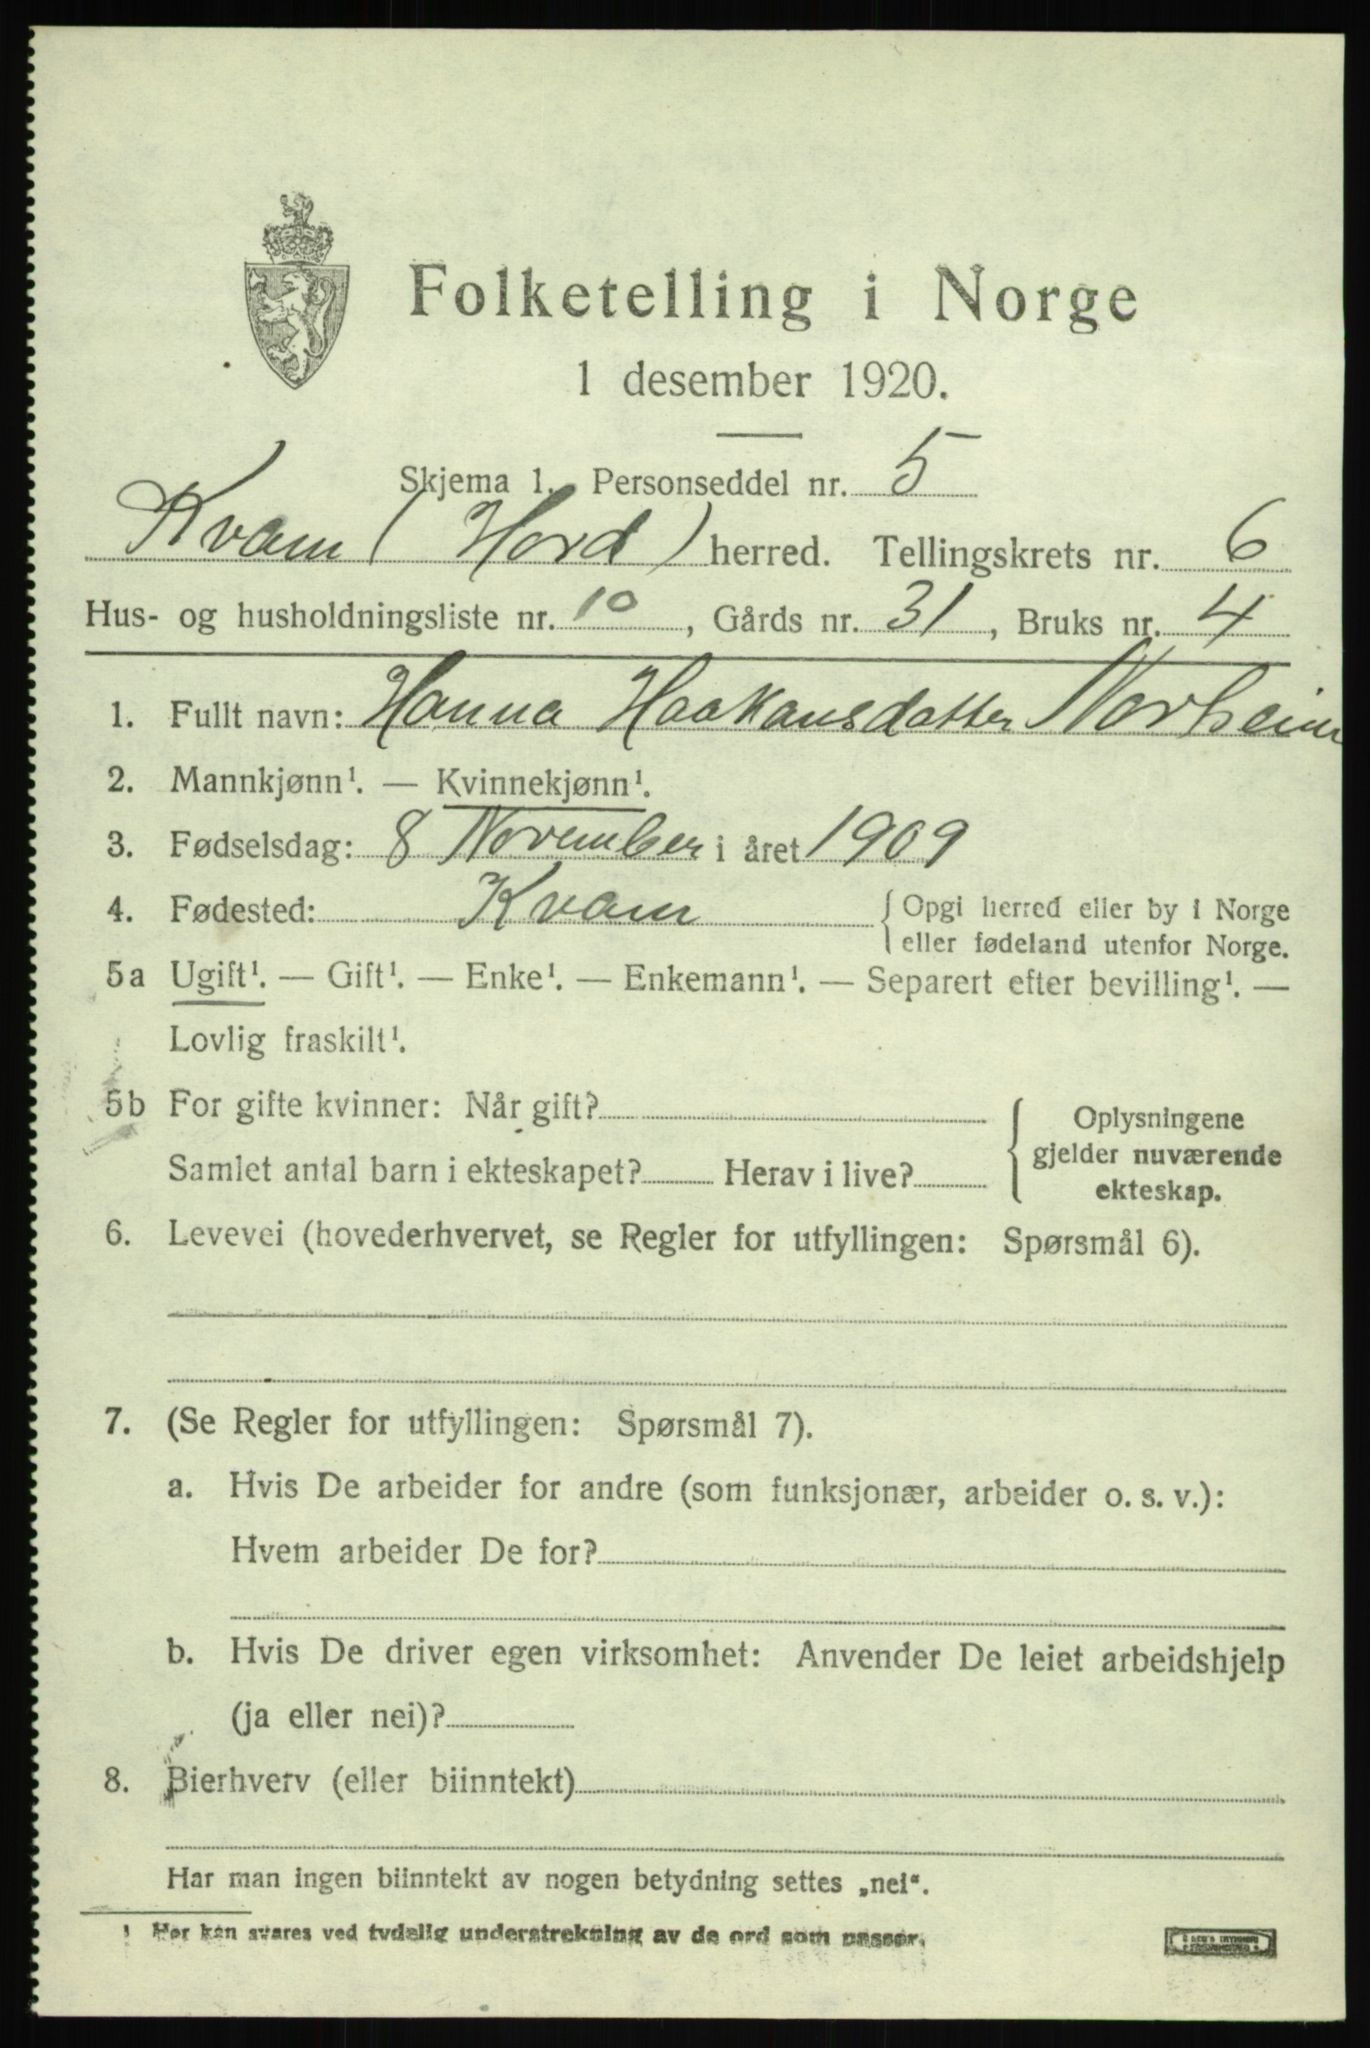 Folketelling i Norge
1 desember 1920.
Skjema 1. Personseddel nr. 5
Kvam (Hord) herred. Tellingskrets nr. 6
Hus- og husholdningsliste nr. 10, Gårds nr. 31, Bruks nr. 4
1. Fullt navn: Hanna Haakansdatter Norheim
2. Mannkjønn¹. — Kvinnekjønn¹.
3. Fødselsdag: 8 November i året 1909
4. Fødested: Kvam {Opgi herred eller by i Norge
eller fødeland utenfor Norge.
5a Ugift¹. — Gift¹. — Enke¹. — Enkemann¹. — Separert efter bevilling¹. —
Lovlig fraskilt¹.
5b For gifte kvinner: Når gift?
Samlet antal barn i ekteskapet? Herav i live?
{Oplysningene
gjelder nuværende
ekteskap.
6. Levevei (hovederhvervet, se Regler for utfyllingen: Spørsmål 6).
7. (Se Regler for utfyllingen: Spørsmål 7).
a. Hvis De arbeider for andre (som funksjonær, arbeider o. s. v.):
Hvem arbeider De for?
b. Hvis De driver egen virksomhet: Anvender De leiet arbeidshjelp
(ja eller nei)?
8. Bierhverv (eller biinntekt)
Har man ingen biinntekt av nogen betydning settes „nei“.
¹ Her kan svares ved tydelig understrekning av de ord som passer.